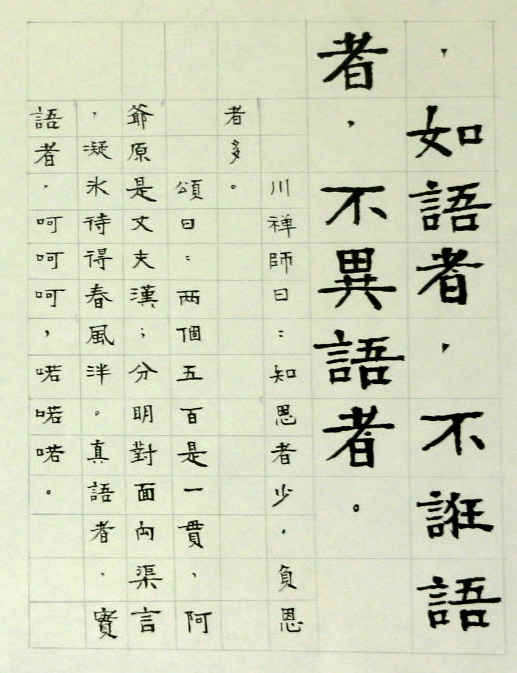 ，如語者，不誑語
者，不異語者。
川禅師曰：知恩者少，負恩
者多。
頌曰：两個五百是一貫，阿
爺原是丈夫漢；分明對面向渠言
，凝氷待得春風泮。真語者，實
語者，呵呵呵，喏喏喏。